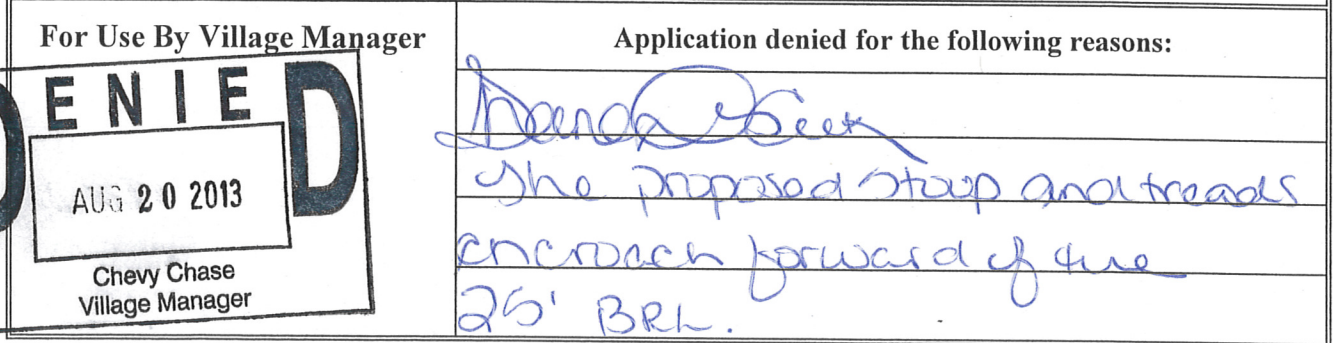 For Use By Village Manager
DENIED
AUG 20 2013
Chevy Chase
Village Manager
Application denied for the following reasons:
The proposed stoop and treads
encroach forward of the
25' BRL.